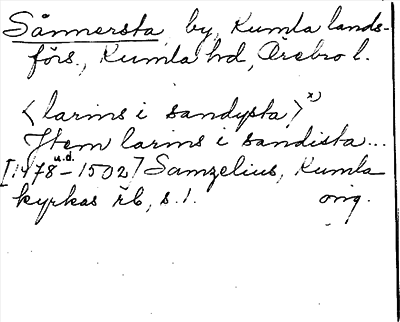 Sånnersta by, Kumla lands-
förs., Kumla hd, Örebro l.
<larins i sandysta> x)
Jtem larins i sandista...
[1478 u.d. - 1502] Samzelius, Kumla
kyrkas rb, s. 1. orig.